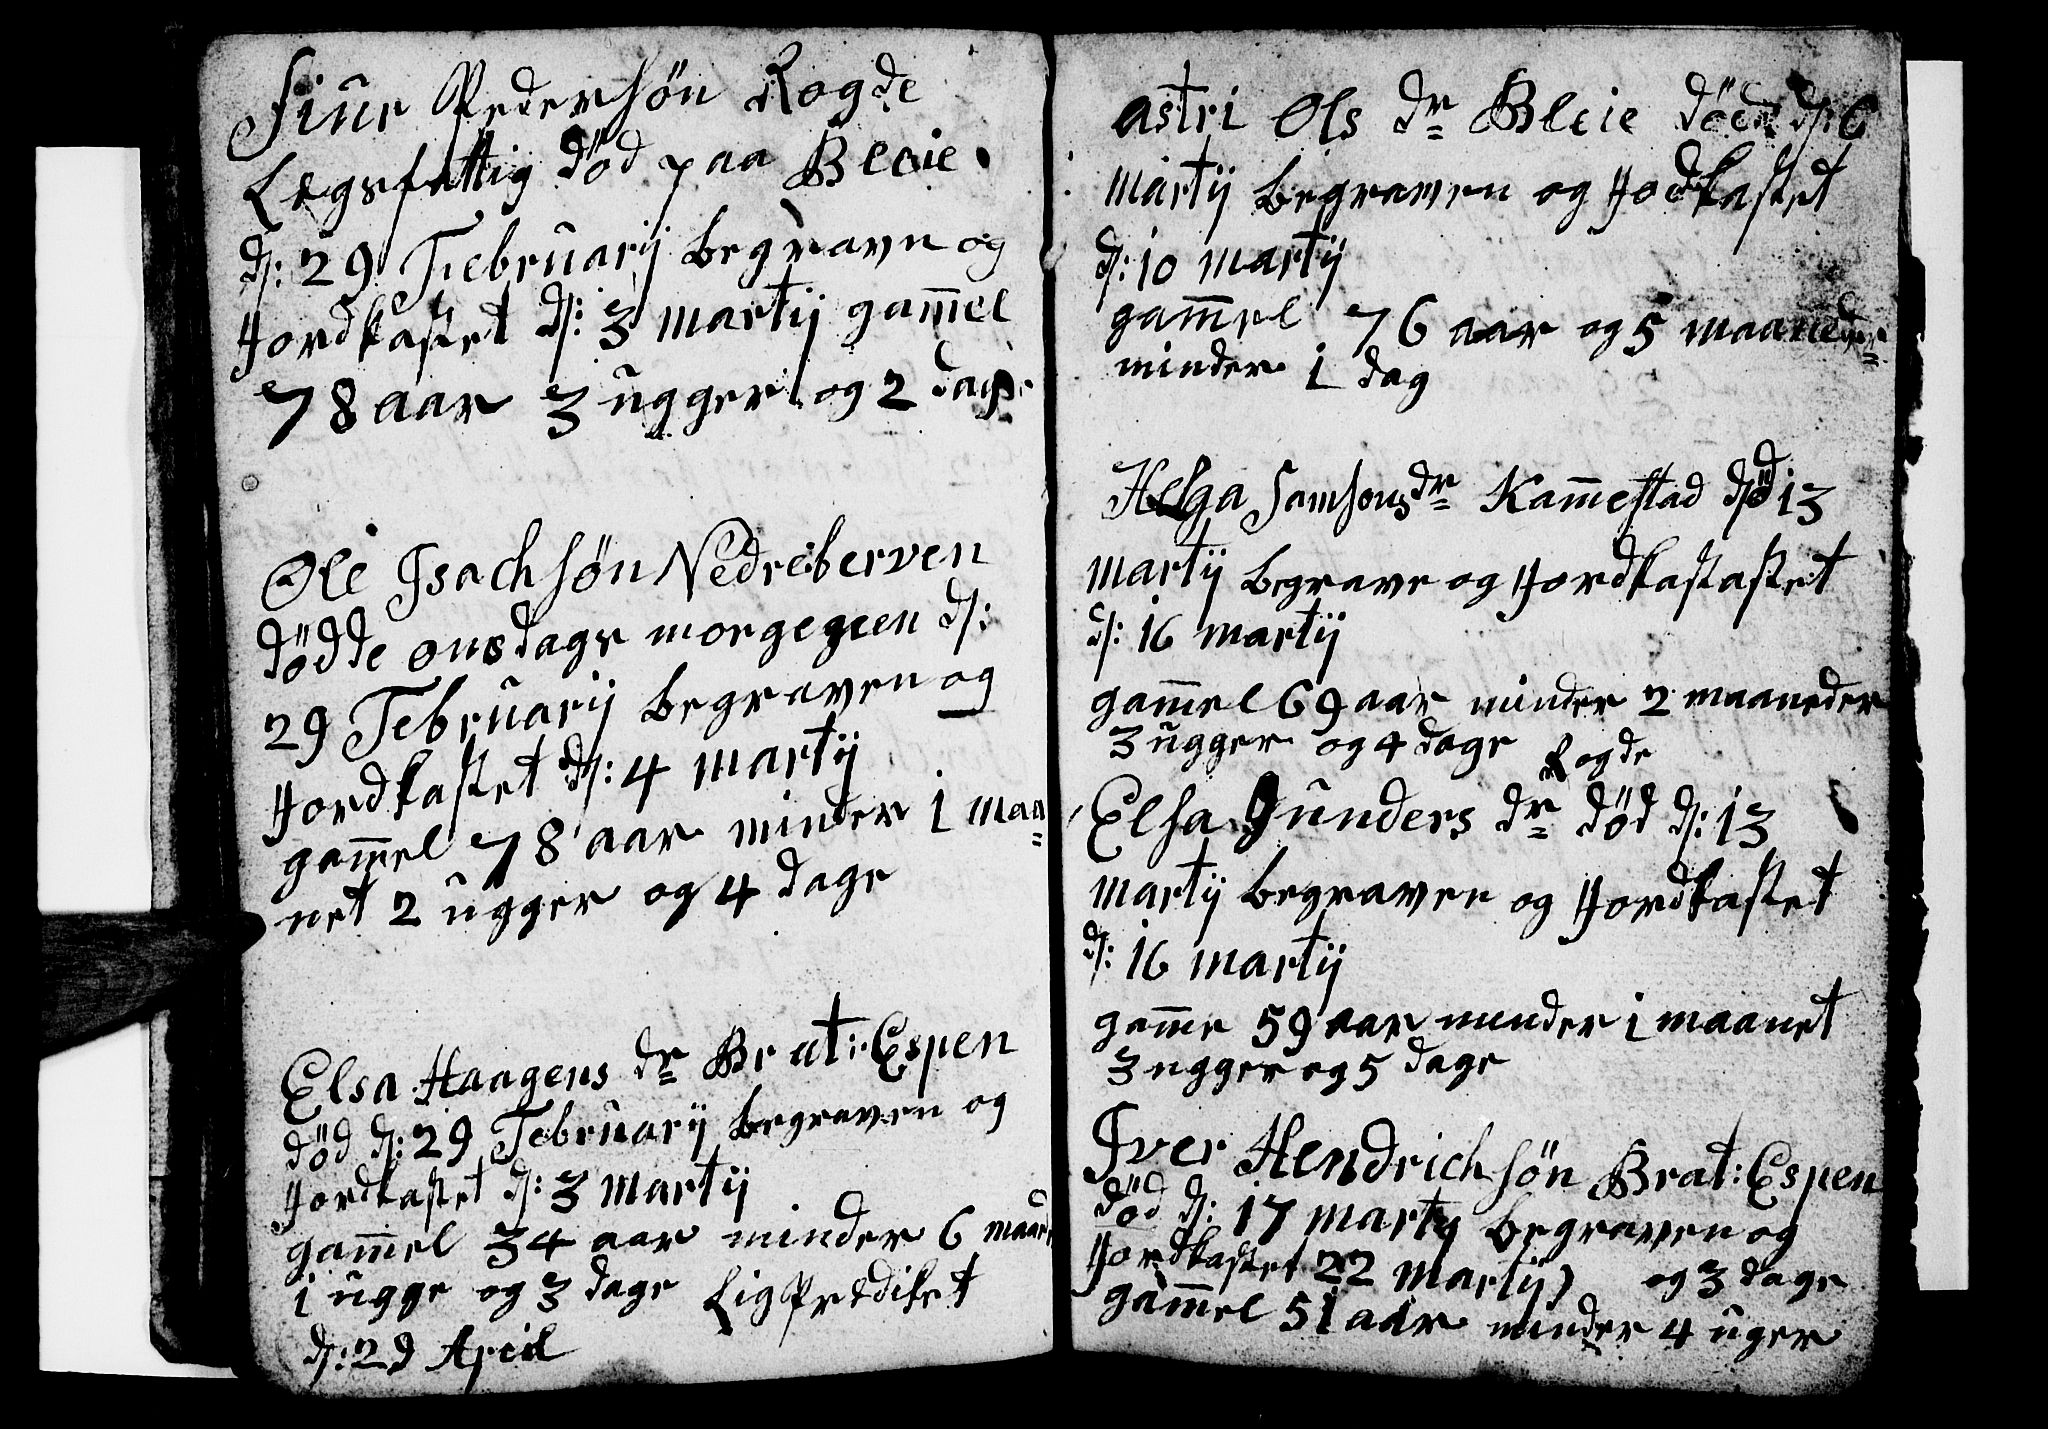 Siur Pedersøn Rogde
Lægsfattig død paa Bleie
d: 29 Februarij begravn og
Jordkastet d: 3 martij gam̄el
78 aar 3 ugger og 2 dage
Ole Isachsøn Nedreberven
dødde onsdags morgegeen d:
29 Februarij begraven og
Jordkastet d: 4 martij
gam̄el 78 aar minder 1 maa=
net 2 ugger og 4 dage
Elsa Haagens dr Brat:Espen
død d: 29 Februarij begraven og
Jordkastet d: 3 martij
gam̄el 34 aar minder 6 maan
1 ugge og 3 dage LigPrediket
d: 29 April
astri Ols dr Bleie død d: 6
martij begraven og Jodkastet
d: 10 martij
gam̄el 76 aar og 5 maaneder
minder 1 dag
Helga Samsons dr Kam̄estad død 13
martij begrave og Jordkastastet
d: 16 martij
gam̄el 69 aar minder 2 maaneder
3 ugger og 4 dage
Rogde
Elsa Gunders dr død d: 13
martij begraven og Jordkastet
d: 16 martij
gam̄e 59 aar minder 1 maanet
3 ugger og 5 dage
Iver Hendrichsøn Brat:Espen
død d: 17 martij begraven og
Jordkastet 22 martij) og 3 dage
gam̄el 51 aar minder 4 uger